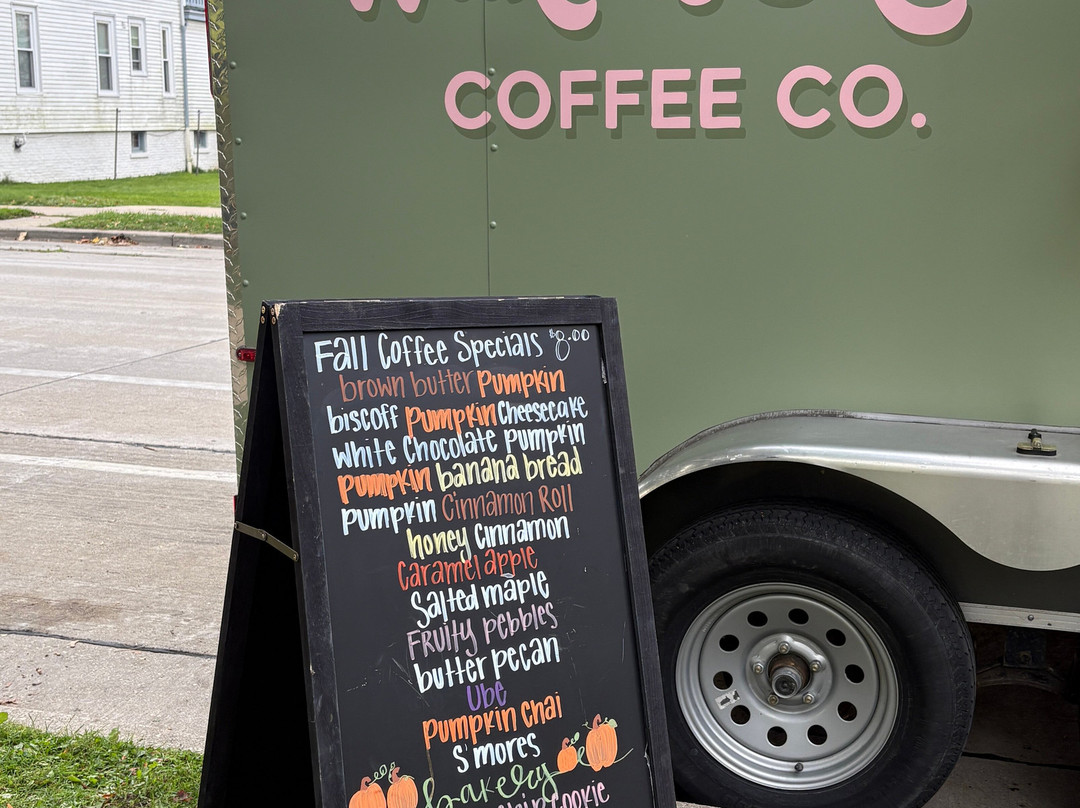 COFFEE CO.
Fall Coffee Specials $8.00
brown butter Pumpkin
biscoff Pumpkin Cheesecake
White Chocolate Pumpkin
Pumpkin banana bread
Pumpkin Cinnamon Roll
honey Cinnamon
Caramel apple
Salted maple
Fruity pebbles
butter pecan
Ube
Pumpkin Chai
S'mores
bakery
Cookie